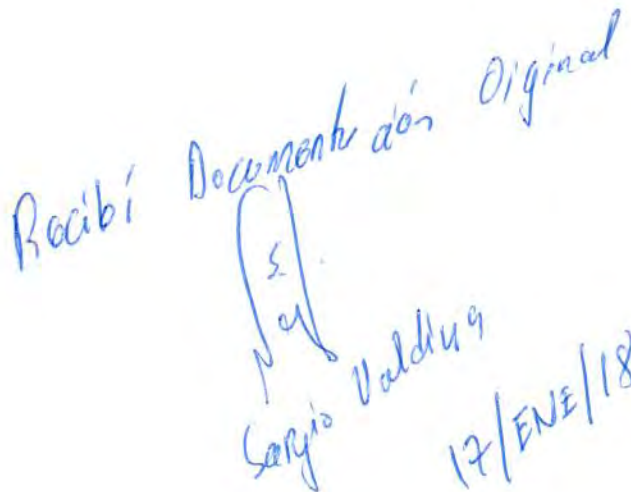 Recibí Documentación Original
Sergio Valdivia
17/ENE/18